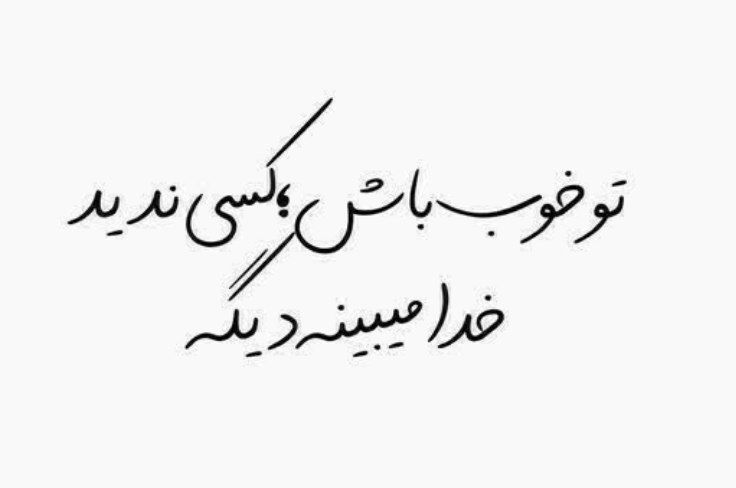 تو خوب باش ؛ کسی ندید
خدا میبینه دیگه